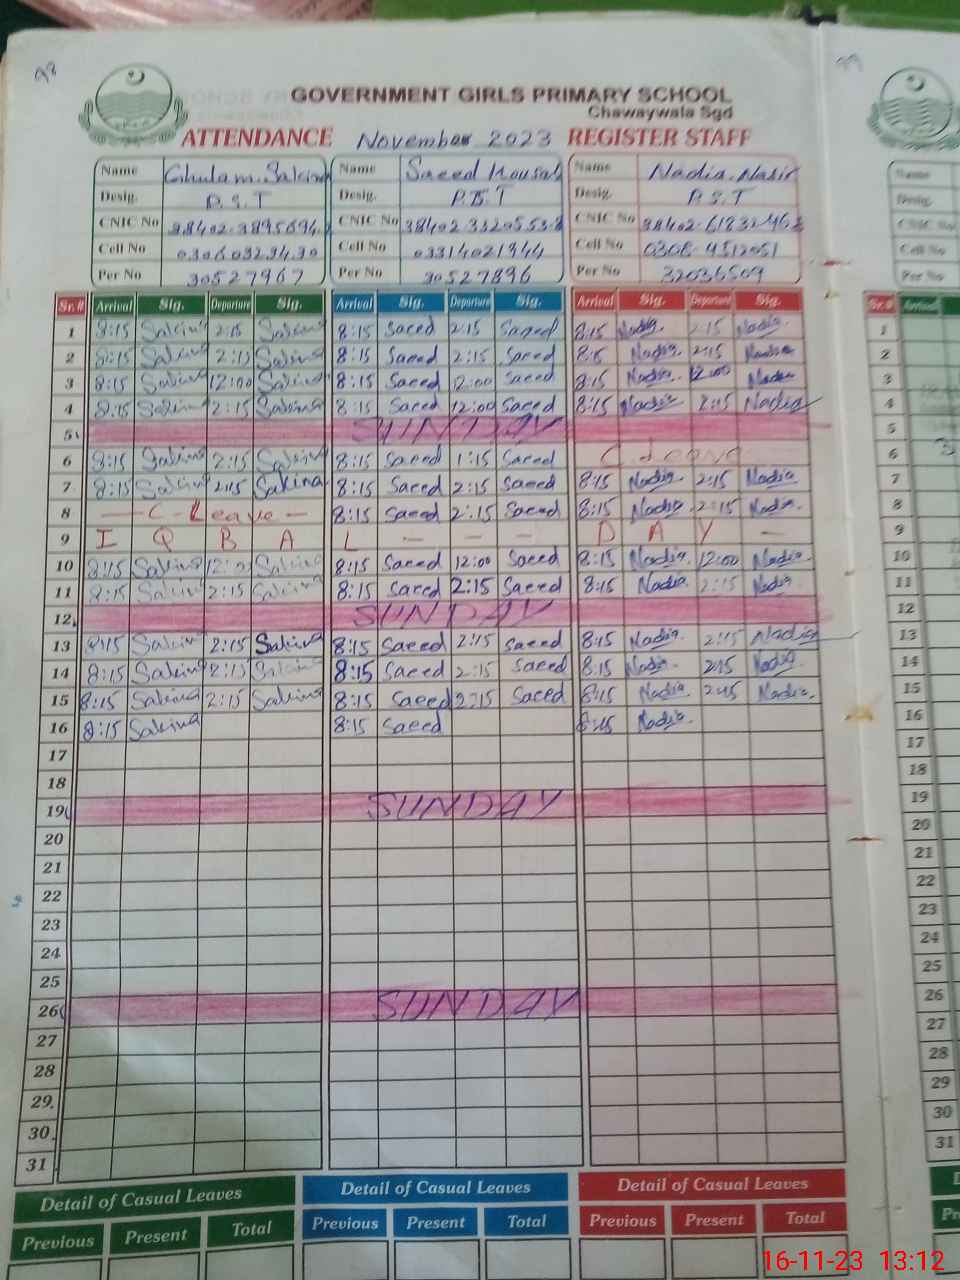 98
99
GOVERNMENT GIRLS PRIMARY SCHOOL
Chawaywala Sgd
ATTENDANCE November 2023 REGISTER STAFF
Name Ghulam Sakina Name Saeed Kousar Name Nadia Nasir
Desig. P.S.T Desig. P.S.T Desig. P.S.T
CNIC No CNIC No CNIC No
Cell No Cell No 03314021944 Cell No
Per No 30527967 Per No 30527896 Per No 32036509
Sr.# Arrival Sig. Departure Sig. Arrival Sig. Departure Sig. Arrival Sig. Departure Sig.
1 8:15 Sakina 2:15 Sakina 8:15 Saeed 2:15 Saeed 8:15 Nadia 2:15 Nadia
2 8:15 Sakina 2:15 Sakina 8:15 Saeed 2:15 Saeed 8:15 Nadia 2:15 Nadia
3 8:15 Sakina 12:00 Sakina 8:15 Saeed 12:00 Saeed 8:15 Nadia 12:00 Nadia
4 8:15 Sakina 2:15 Sakina 8:15 Saeed 12:00 Saeed 8:15 Nadia 2:15 Nadia
5 SUNDAY
6 8:15 Sakina 2:15 Sakina 8:15 Saeed 1:15 Saeed C.leave
7 8:15 Sakina 2:15 Sakina 8:15 Saeed 2:15 Saeed 8:15 Nadia 2:15 Nadia
8 — C-Leave — 8:15 Saeed 2:15 Saeed 8:15 Nadia 2:15 Nadia
9 I Q B A L - - - D A Y -
10 8:15 Sakina 12:00 Sakina 8:15 Saeed 12:00 Saeed 8:15 Nadia 12:00 Nadia
11 8:15 Sakina 2:15 Sakina 8:15 Saeed 2:15 Saeed 8:15 Nadia 2:15 Nadia
12 SUNDAY
13 8:15 Sakina 2:15 Sakina 8:15 Saeed 2:15 Saeed 8:15 Nadia 2:15 Nadia
14 8:15 Sakina 2:15 Sakina 8:15 Saeed 2:15 Saeed 8:15 Nadia 2:15 Nadia
15 8:15 Sakina 2:15 Sakina 8:15 Saeed 2:15 Saeed 8:15 Nadia 2:15 Nadia
16 8:15 Sakina 8:15 Saeed 8:15 Nadia
17
18
19 SUNDAY
20
21
22
23
24
25
26 SUNDAY
27
28
29
30
31
Detail of Casual Leaves Detail of Casual Leaves Detail of Casual Leaves
Previous Present Total Previous Present Total Previous Present Total
Name
Desig.
CNIC No
Cell No
Per No
Sr.# Arrival
1
2
3
4
5
6
7
8
9
10
11
12
13
14
15
16
17
18
19
20
21
22
23
24
25
26
27
28
29
30
31
16-11-23 13:12